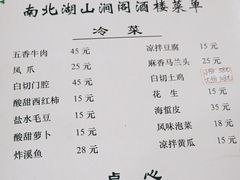 南北湖山涧阁酒楼菜单
冷菜
五香牛肉 45 元
凤爪 25 元
白切门腔 40 元
酸甜西红柿 15 元
盐水毛豆 15 元
酸甜萝卜 15 元
炸溪鱼 28 元
凉拌豆腐 15 元
麻香马兰头 25 元
白切土鸡
花生 15 元
海蜇皮 35 元
风味泡菜 18 元
凉拌黄瓜 15 元
点心